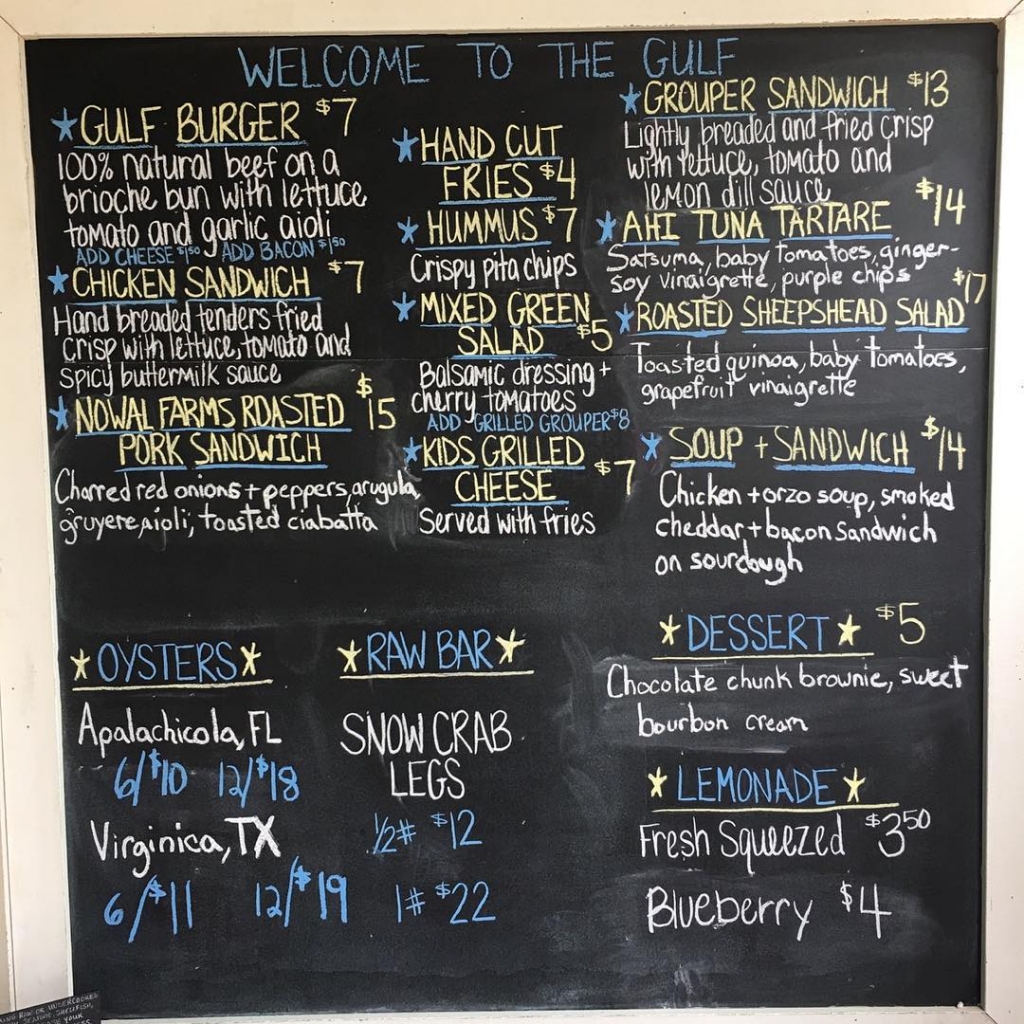 WELCOME TO THE GULF
GULF BURGER $7
100% natural beef on a
brioche bun with lettuce
tomato and garlic aioli
ADD CHEESE $1.50 ADD BACON $1.50
CHICKEN SANDWICH $7
Hand breaded tenders fried
crisp with lettuce, tomato and
spicy buttermilk sauce
NOWAL FARMS ROASTED $15
PORK SANDWICH
Charred red onions + peppers, arugula,
gruyere, aioli, toasted ciabatta
HAND CUT
FRIES $4
HUMMUS $7
Crispy pita chips
MIXED GREEN
SALAD $5
Balsamic dressing +
cherry tomatoes
ADD GRILLED GROUPER $8
KIDS GRILLED
CHEESE $7
Served with fries
GROUPER SANDWICH $13
Lightly breaded and fried crisp
with lettuce, tomato and
lemon dill sauce
AHI TUNA TARTARE $14
Satsuma, baby tomatoes, ginger-
soy vinaigrette, purple chips
ROASTED SHEEPSHEAD SALAD $17
Toasted quinoa, baby tomatoes,
grapefruit vinaigrette
SOUP + SANDWICH $14
Chicken + orzo soup, smoked
cheddar + bacon sandwich
on sourdough
OYSTERS
Apalachicola, FL
6/$10 12/$18
Virginica, TX
6/$11 12/$19
RAW BAR
SNOW CRAB
LEGS
1/2# $12
1# $22
DESSERT $5
Chocolate chunk brownie, sweet
bourbon cream
LEMONADE
Fresh Squeezed $3.50
Blueberry $4
RAW OR UNDERCOOKED
SHELLFISH,
YOUR